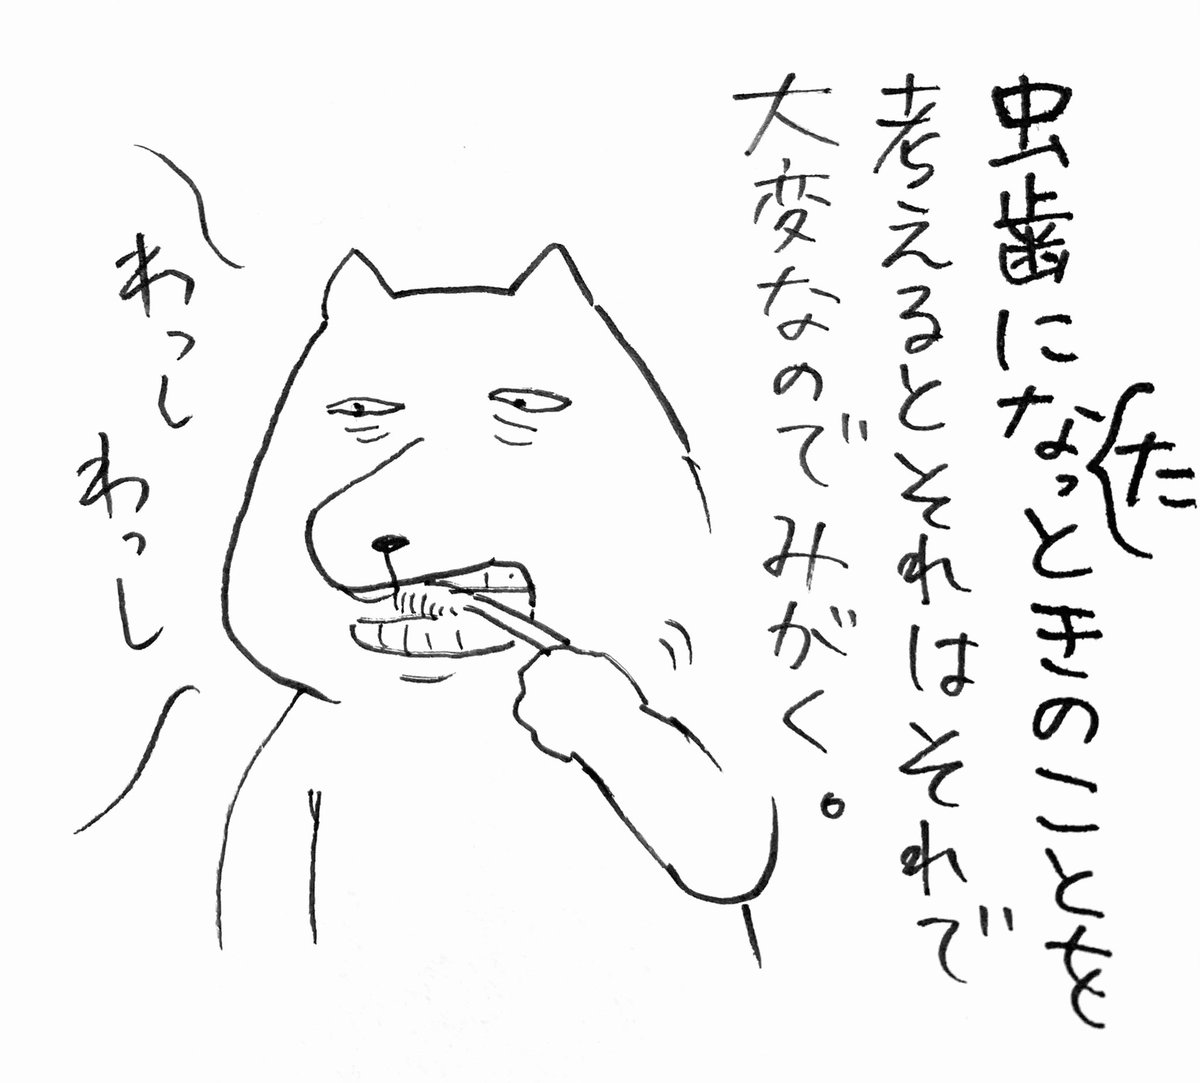 虫歯になったときのことを
考えるとそれはそれで
大変なのでみがく。
わっし
わっし